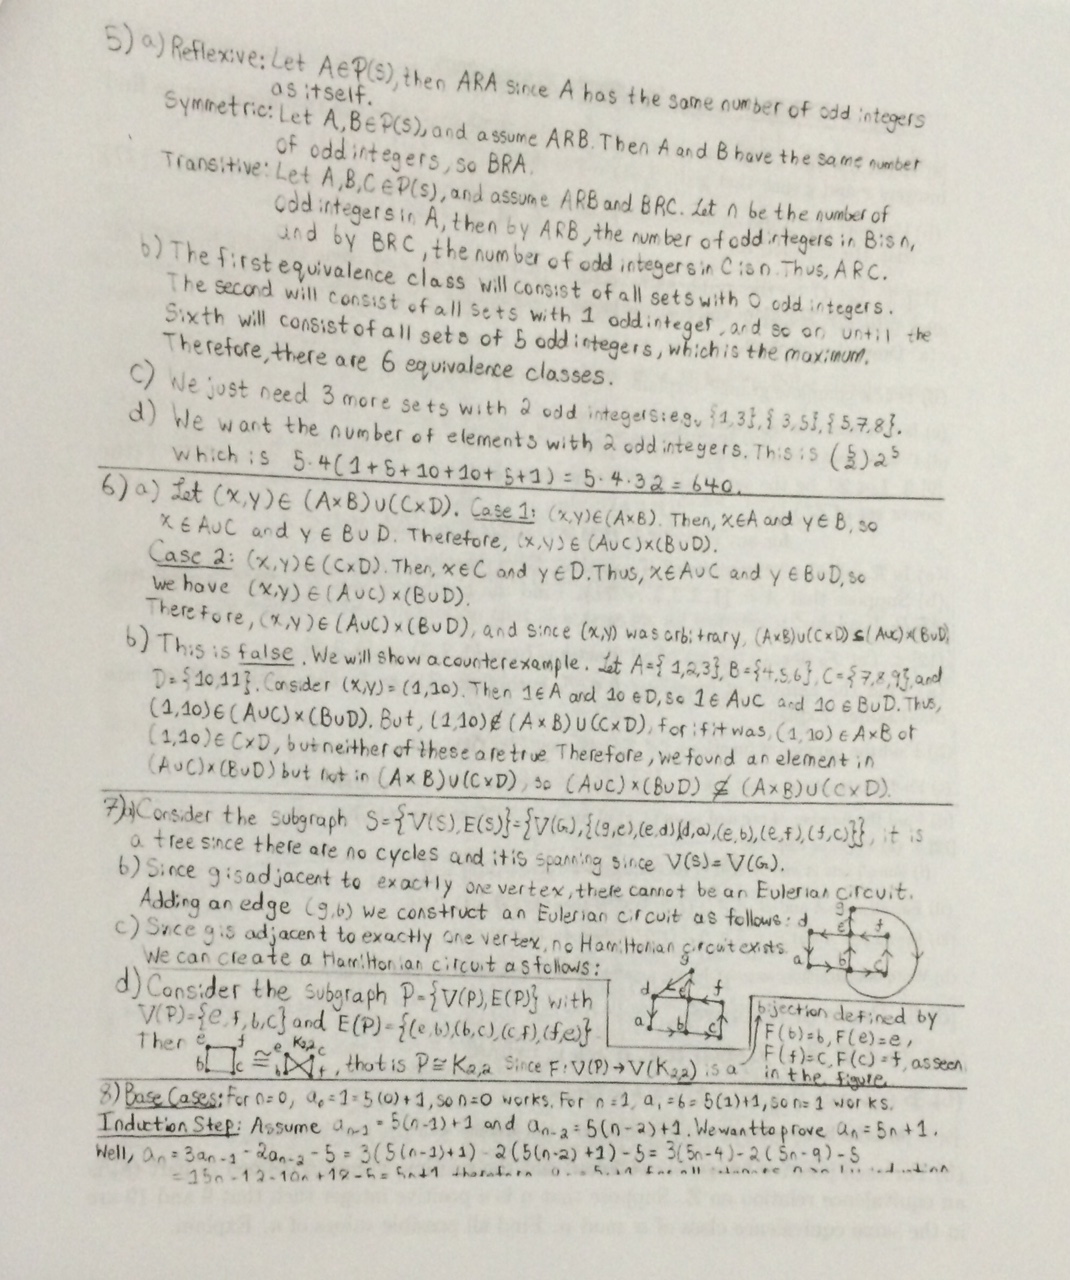 5) a) Reflexive: Let A∈P(S), then ARA since A has the same number of odd integers
as itself.
Symmetric: Let A,B∈P(S), and assume ARB. Then A and B have the same number
of odd integers, so BRA.
Transitive: Let A,B,C∈P(S), and assume ARB and BRC. Let n be the number of
odd integers in A, then by ARB, the number of odd integers in B is n,
and by BRC, the number of odd integers in C is n. Thus, ARC.
b) The first equivalence class will consist of all sets with 0 odd integers.
The second will consist of all sets with 1 odd integer, and so on until the
sixth will consist of all sets of 5 odd integers, which is the maximum.
Therefore, there are 6 equivalence classes.
c) We just need 3 more sets with 2 odd integers: e.g. {1,3}, {3,5}, {5,7,8}.
d) We want the number of elements with 2 odd integers. This is (5/2)2⁵
which is 5·4(1+5+10+10+5+1) = 5·4·32 = 640.
6) a) Let (x,y)∈(A×B)∪(C×D). Case 1: (x,y)∈(A×B). Then, x∈A and y∈B, so
x∈A∪C and y∈B∪D. Therefore, (x,y)∈(A∪C)×(B∪D).
Case 2: (x,y)∈(C×D). Then, x∈C and y∈D. Thus, x∈A∪C and y∈B∪D, so
we have (x,y)∈(A∪C)×(B∪D).
Therefore, (x,y)∈(A∪C)×(B∪D), and since (x,y) was arbitrary, (A×B)∪(C×D)⊆(A∪C)×(B∪D)
b) This is false. We will show a counterexample. Let A={1,2,3}, B={4,5,6}, C={7,8,9}, and
D={10,11}. Consider (x,y)=(1,10). Then 1∈A and 10∈D, so 1∈A∪C and 10∈B∪D. Thus,
(1,10)∈(A∪C)×(B∪D). But, (1,10)∉(A×B)∪(C×D), for if it was, (1,10)∈A×B or
(1,10)∈C×D, but neither of these are true. Therefore, we found an element in
(A∪C)×(B∪D) but not in (A×B)∪(C×D), so (A∪C)×(B∪D)⊈(A×B)∪(C×D).
7) a) Consider the subgraph S={V(S),E(S)}={V(G),{(g,e),(e,d),(d,a),(e,b),(e,f),(f,c)}}, it is
a tree since there are no cycles and it is spanning since V(S)=V(G).
b) Since g is adjacent to exactly one vertex, there cannot be an Eulerian circuit.
Adding an edge (g,b) we construct an Eulerian circuit as follows:
g
d e f
a b c
c) Since g is adjacent to exactly one vertex, no Hamiltonian circuit exists.
We can create a Hamiltonian circuit as follows:
d e f
a b c
d) Consider the subgraph P={V(P),E(P)} with
V(P)={e,f,b,c} and E(P)={(e,b),(b,c),(c,f),(f,e)}
Then e f b c ≅ e K₂,₂ c b f, that is P≅K₂,₂ since F:V(P)→V(K₂,₂) is a
bijection defined by
F(b)=b, F(e)=e,
F(f)=c, F(c)=f, as seen
in the figure
8) Base Cases: For n=0, a₀=1=5(0)+1, so n=0 works. For n=1, a₁=6=5(1)+1, so n=1 works.
Induction Step: Assume aₙ₋₁=5(n-1)+1 and aₙ₋₂=5(n-2)+1. We want to prove aₙ=5n+1.
Well, aₙ=3aₙ₋₁-2aₙ₋₂-5=3(5(n-1)+1)-2(5(n-2)+1)-5=3(5n-4)-2(5n-9)-5
=15n-12-10n+18-5=5n+1 therefore